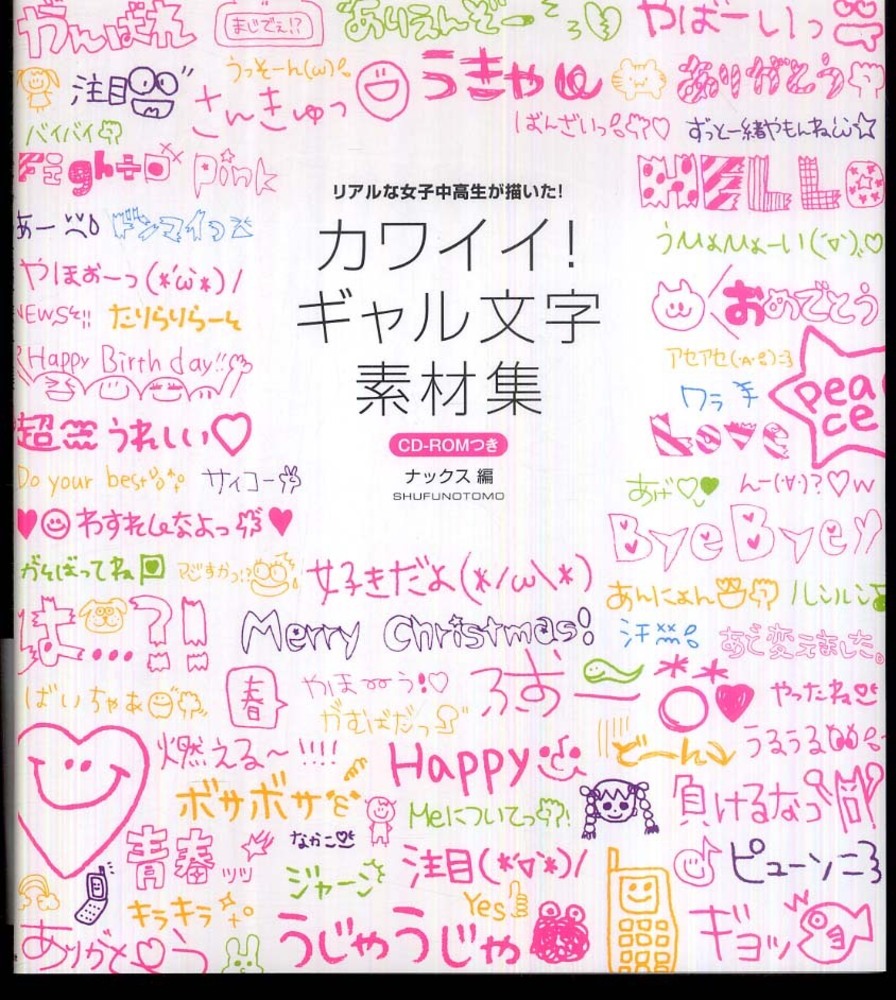 がんばれ
まじでぇ!?
ありえんぞー
やばーいっ
注目
うっそーん(ω)
さんきゅっ
うきゃ
ありがとう
バイバイ
ばんざいっ
ずっと一緒やもんね
Fight
Pink
HELLO
リアルな女子中高生が描いた!
カワイイ!
ギャル文字
素材集
CD-ROMつき
ナックス 編
SHUFUNOTOMO
あー
ドンマイっ
うひょひょーい(˙▽˙)
やほぉーっ(*'ω'*)/
おめでとう
NEWS!!
たりらりらーん
アセアセ
Happy Birthday!!
ワラ
peace
超
うれしい♡
Love
Do your best
サイコー
あげ♡♥
んー(･∀･)?♡w
♥わすれんなよっ♥
ByeBye
がんばってね
マじすかっ!?
好きだよ(*/ω\*)
あんにょん
ルンルン
は...?!
Merry Christmas!
汗
あど変えました。
ばいちゃぁ
春
やほーう!♡
がむばだっ
ふぉー
やったね
燃える〜!!!!
Happy
どーん
うるうる
ボサボサ
Meについてっ?!
負けるなっ
青春ッッ
なかこ
注目(*'▽'*)/
ピューン
ジャーン
キラキラ
Yes
ありがとう
うじゃうじゃ
ギョッ